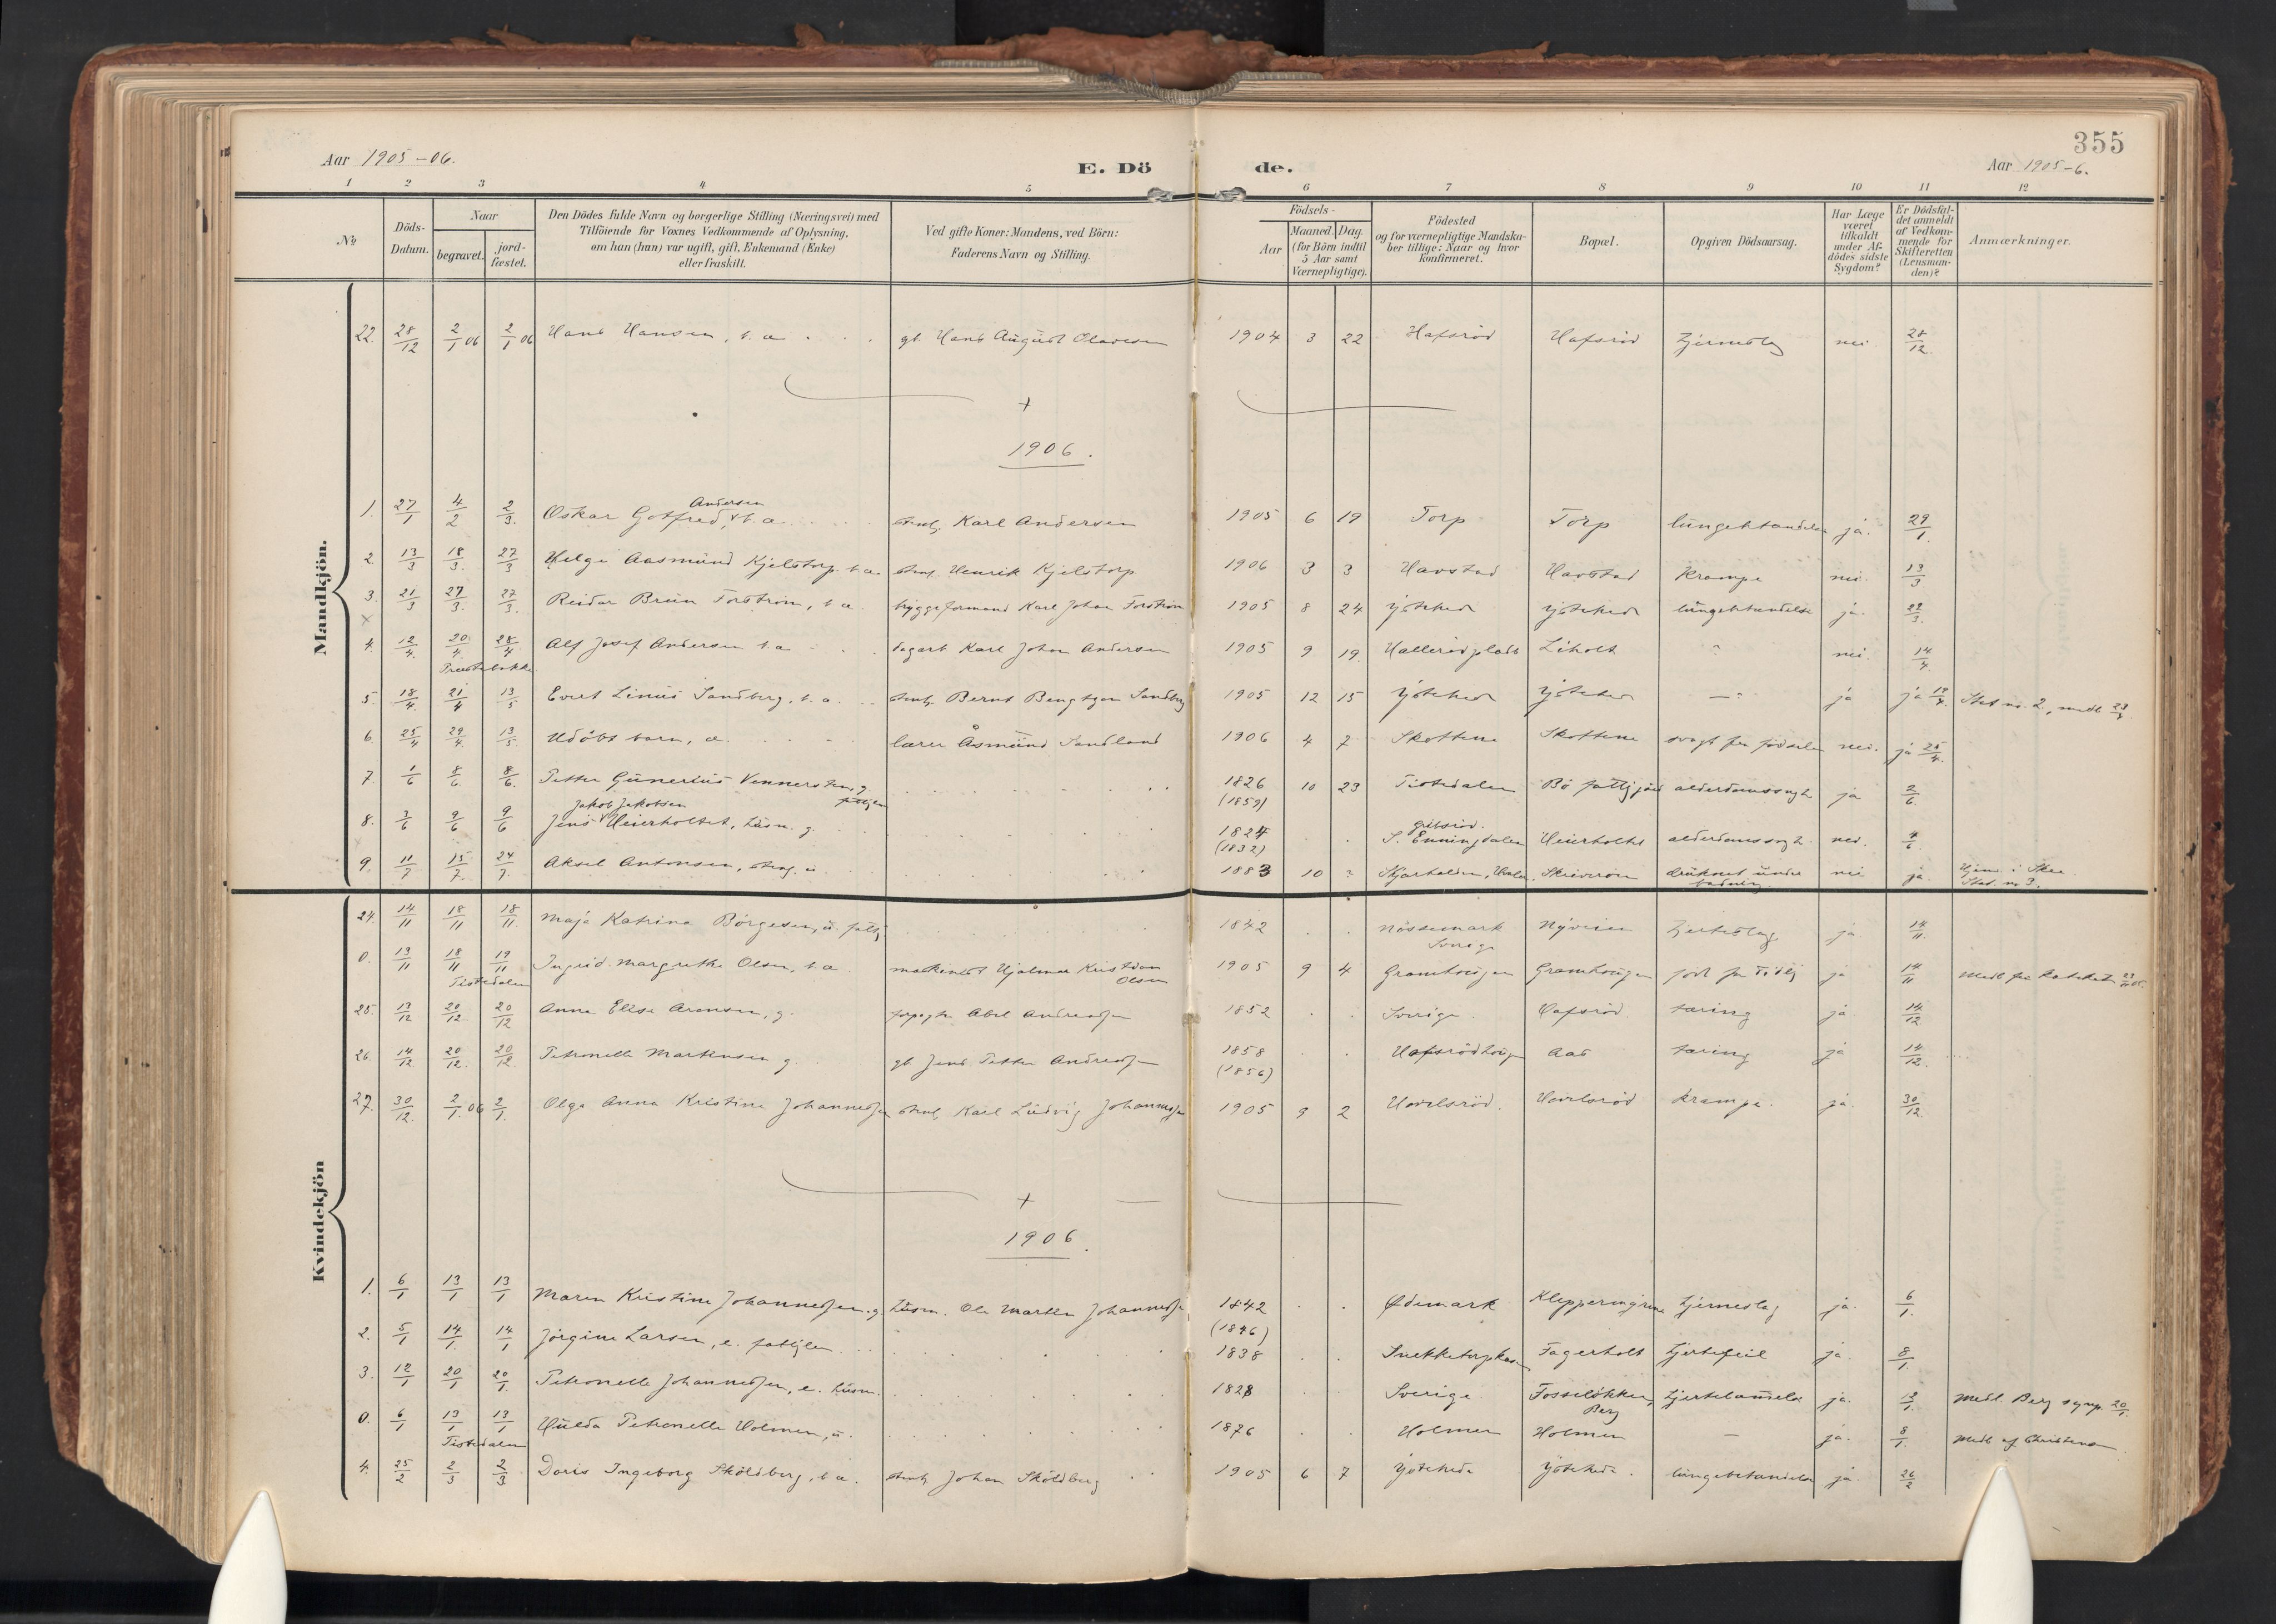 355
Aar 1905-06.
E. Dö de.
Aar 1905-6.
1 2 3 4 5 6 7 8 9 10 11 12
No
Döds-Datum.
Naar
begravet.
jord-fæstet.
Den Dödes fulde Navn og borgerlige Stilling (Næringsvei) med
Tilföiende for Voxnes Vedkommende af Oplysning,
om han (hun) var ugift, gift, Enkemand (Enke)
eller fraskilt.
Ved gifte Koner: Mandens, ved Börn:
Faderens Navn og Stilling.
Födsels-
Aar
Maaned. Dag.
(for Börn indtil
5 Aar samt
Værnepligtige).
Födested
og for værnepligtige Mandska-
ber tillige: Naar og hvor
konfirmeret.
Bopæl.
Opgiven Dödsaarsag.
Har Læge
været
tilkaldt
under Af-
dödes sidste
Sygdom?
Er Dödsfal-
det anmeldt
af Vedkom-
mende for
Skifteretten
(Lensman-
den)?
Anmærkninger.
Mandkjön.
22. 28/12 2/1 06 2/1 06 Hans Hansen, b. a gb. Hans August Olavesen 1904 3 22 Hafsröd Hafsröd hjerneslag nei. 28/12
1906.
Andersen
1. 27/1 4/2 2/3. Oskar Gotfred, b. a. stenh. Karl Andersen 1905 6 19 Torp Torp lungebetændelse ja. 29/1
2. 13/3 18/3. 27/3 Helge Aasmund Kjelstorp b. a. stenh. Henrik Kjelstorp 1906 3 3 Havstad Havstad Krampe nei. 13/3
3. 21/3 27/3. 27/3. Reidar Brun Forström, b. a. byggeformand Karl Johan Forström 1905 8 24 lungebetændelse ja. 22/3.
4. 12/4. 20/4. 28/4 Alf Josef Andersen b. a dagarb. Karl Johan Andersen 1905 9 19. Hallerödplads Liholt " nei. 14/4.
Præstebakke
5. 18/4. 21/4 13/5 Evert Linus Sandberg, b. a. stenh. Bernt Bengtson Sandberg 1905 12 15 — " ja ja 19/4. Stat. nr. 2, medl. 23/4.
6. 25/4 29/4. 13/5 Udöbt barn, a lærer Åsmund Sandland 1906 4 7 Skottene Skottene svagt fra födselen nei. ja 25/4.
7. 1/6 8/6 8/6. Petter Gunerius Vennersten, g. fattiglem 1826 (1859) 10 23 Tistedalen Bö fattiggård alderdomssvagh. ja 2/6.
Jakob Jakobsen
8. 3/6 9/6 9/6 Jens Heierholtet, husm. g. 1824 (1832) S. Enningdalen Heierholtet alderdomssvagh. nei. 4/6.
9. 11/7 15/7. 24/7. Aksel Antonsen, steng. u. 1883 10 ? Skjærhalden, Hvaler. druknet under badning nei ja. Hjem. i Skee. Stat. nr 3.
Kvindekjön
24. 14/11 18/11 18/11. Maja Katrina Börgesen, u. fattigl. 1842 Nössemark Sverige Nyveien hjerteslag ja 14/11.
0. 13/11 18/11 19/11 Ingrid Margrethe Olsen, b. a. maskinist Hjalmar Kristian Olsen 1905 9 4 Gramhougen Gramhougen ja 14/11 Medl. fra kateket 23/11 05.
Tistedalen
25. 13/12 20/12. 20/12 Anna Elise Aronsen, g. forpagter Abel Andreassen 1852 Sverige. Hafsröd. tæring ja. 14/12
26. 14/12 20/12. 20/12. Petronelle Martinsen g. gb. Jens Petter Andreassen 1858 (1856) Hafsrödhougen Aas tæring ja 14/12.
27. 30/12. 2/1. 06 2/1. Olga Anna Kristine Johannessen stenh. Karl Ludvig Johannessen 1905 9 2 krampe. ja. 30/12.
1906.
1. 6/1 13/1 13/1 Maren Kristine Johannessen. g. husm. Ole Martin Johannessen 1842 (1846) Ødemark Kleppermyrene hjerneslag ja. 6/1.
2. 5/1 14/1. 14/1 Jörgine Larsen, e. fattiglem 1838 Fagerholt hjertefeil ja. 8/1.
3. 12/1 20/1 20/1. Petronelle Johannessen, e. husm. 1828 Sverige Fosselökken, Berg hjertelammelse ja. 13/1. Medl. Berg sogn. 20/1.
0. 6/1 13/1 13/1 Hulda Petronelle Holmen, u. 1876 Holmen Holmen — ja. 8/1. Medl. af
Tistedalen
4. 25/2 2/3 2/3 Doris Ingeborg Sköldberg, b. a. stenh. Johan Sköldberg 1905 6 7 lungebetændelse ja. 26/2